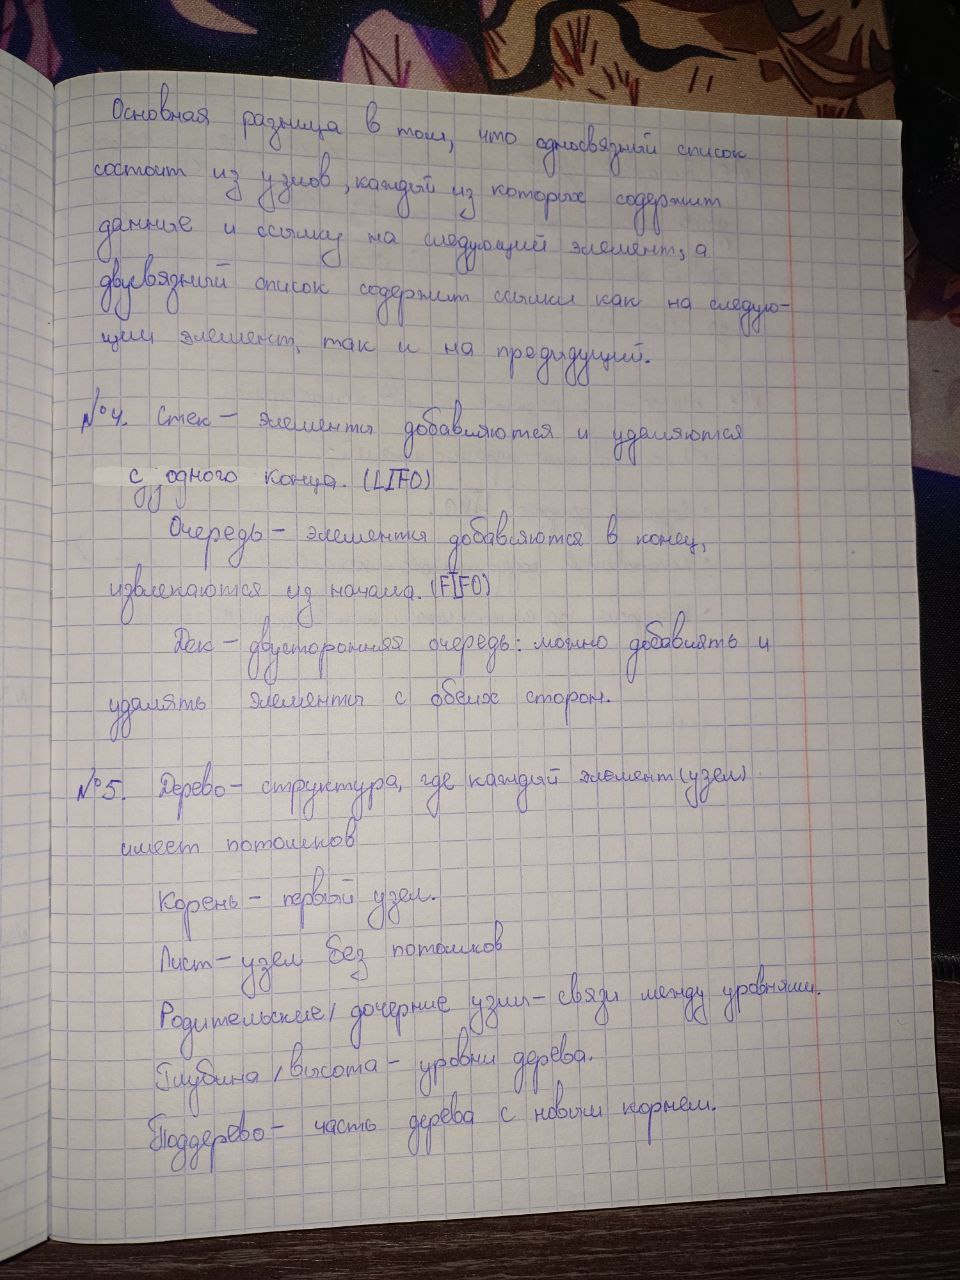 Основная разница в том, что односвязный список
состоит из узлов, каждый из которых содержит
данные и ссылку на следующий элемент, а
двусвязный список содержит ссылки как на следую-
щий элемент, так и на предыдущий.
№4. Стек - элементы добавляются и удаляются
с одного конца. (LIFO)
Очередь - элементы добавляются в конец,
извлекаются из начала. (FIFO)
Дек - двусторонняя очередь: можно добавлять и
удалять элементы с обеих сторон.
№5. Дерево - структура, где каждый элемент (узел)
имеет потомков
Корень - первый узел.
Лист - узел без потомков
Родительские/дочерние узлы - связи между уровнями.
Глубина/высота - уровни дерева.
Поддерево - часть дерева с новым корнем.